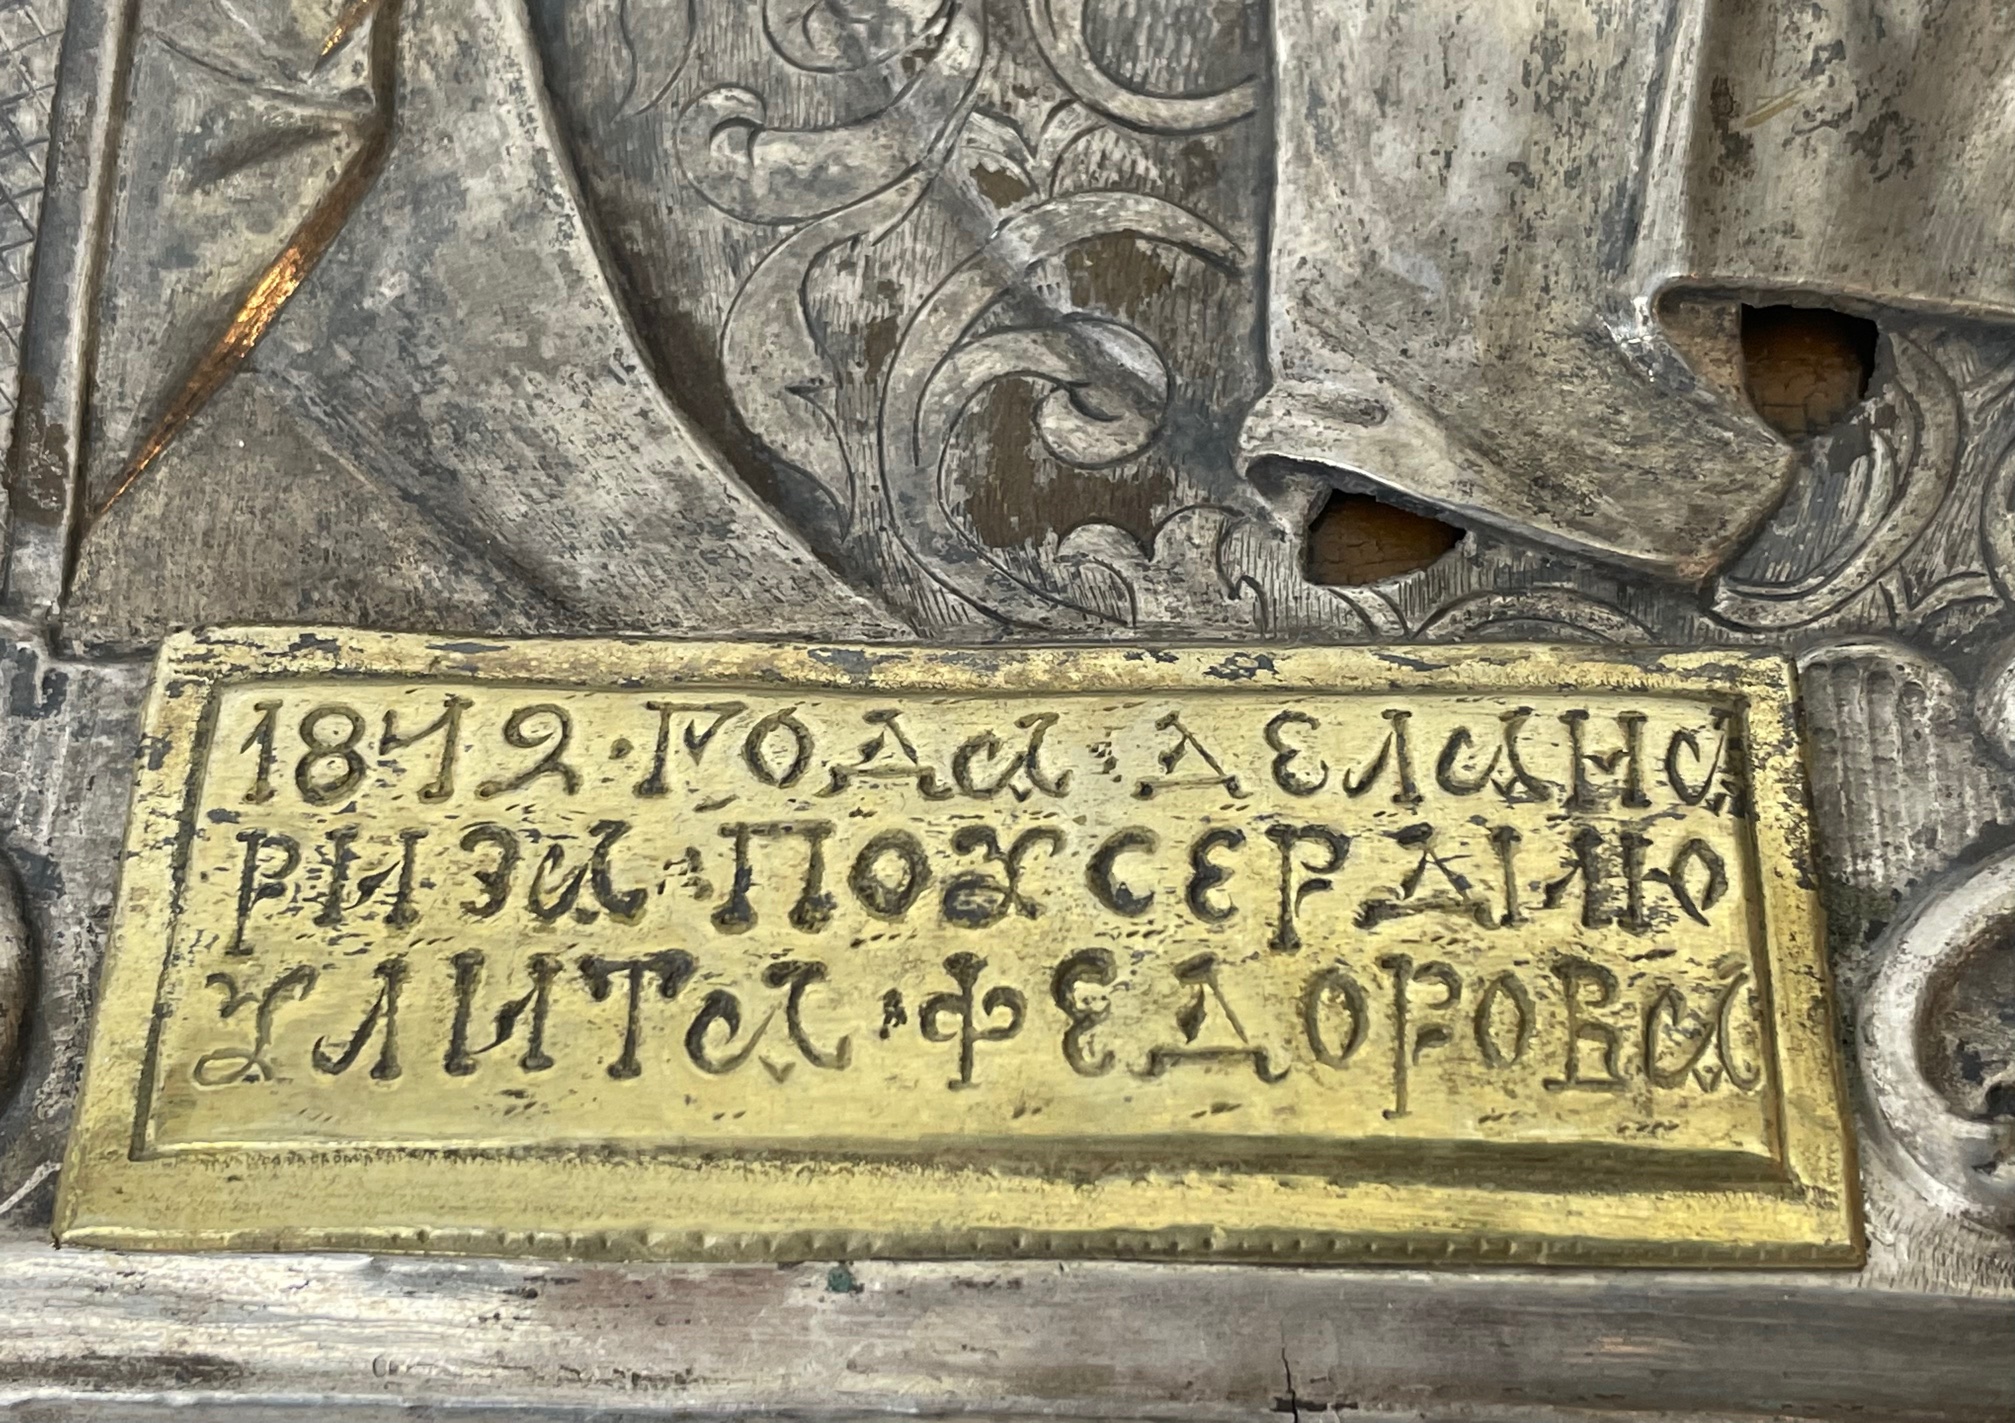 1872·ГОДА ДЕЛАНА
РИЗА·ПОУСЕРДИЮ
УЛИТА·ФЕДОРОВА